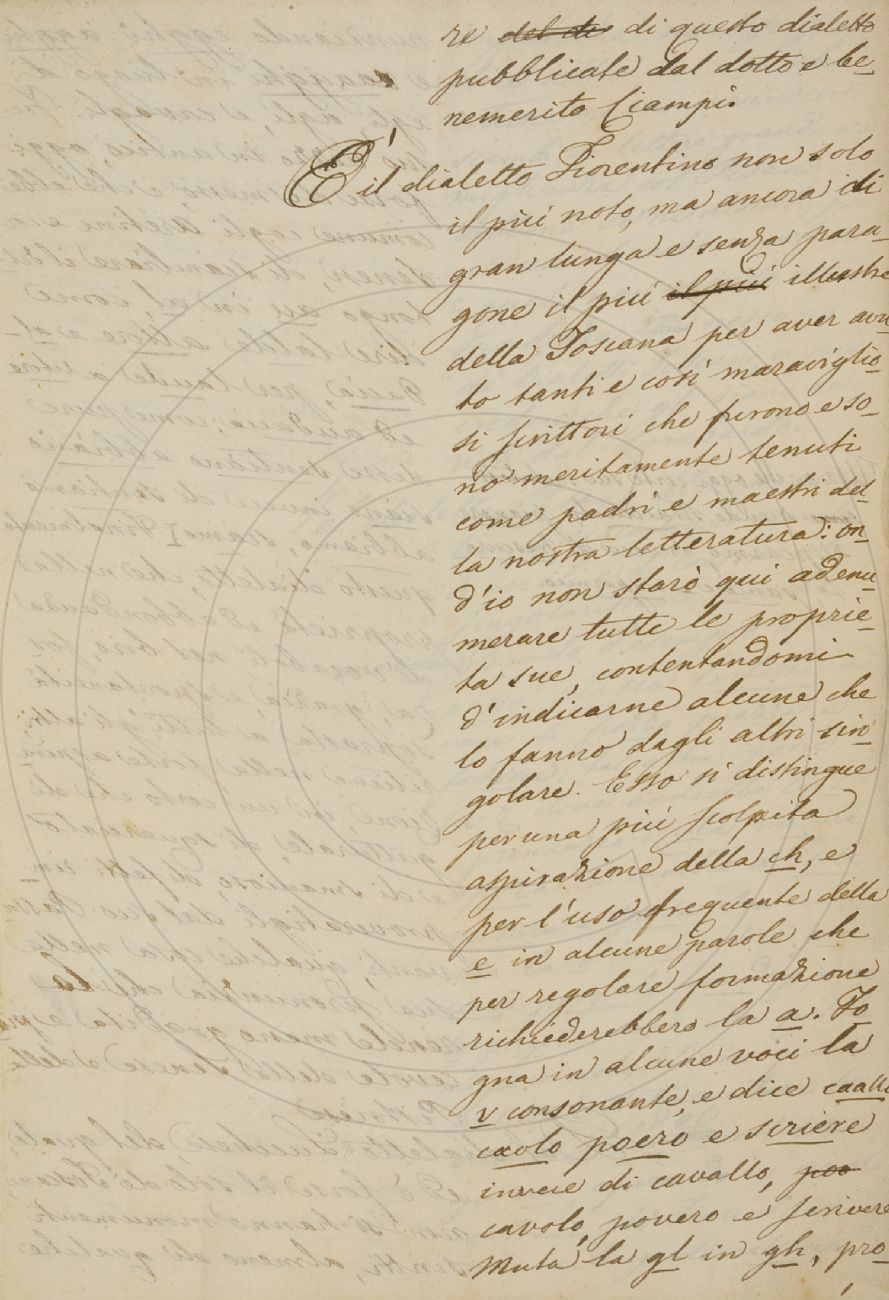 re del di di questo dialetto
pubblicate dal dotto e be_
nemerito Ciampi.
È il dialetto Fiorentino non solo
il più noto, ma ancora di
gran lunga e senza para_
gone il più il più illustre
della Toscana per aver avu
to tanti e così maraviglio_
si scrittori che furono e so_
no meritamente tenuti
come padri e maestri del_
la nostra letteratura: on_
d'io non starò qui ad enu_
merare tutte le proprie_
ta sue, contentandomi
d'indicarne alcune che
lo fanno dagli altri sin_
golare. Esso si distingue
per una più scolpita
aspirazione della ch, e
per l'uso frequente della
e in alcune parole che
per regolare formazione
richiederebbero la a. To_
gna in alcune voci la
v consonante, e dice caallo
caolo poero, e scriere
invece di cavallo, poo
cavolo, povero e scrivere
Muta la gl in gh, pro_